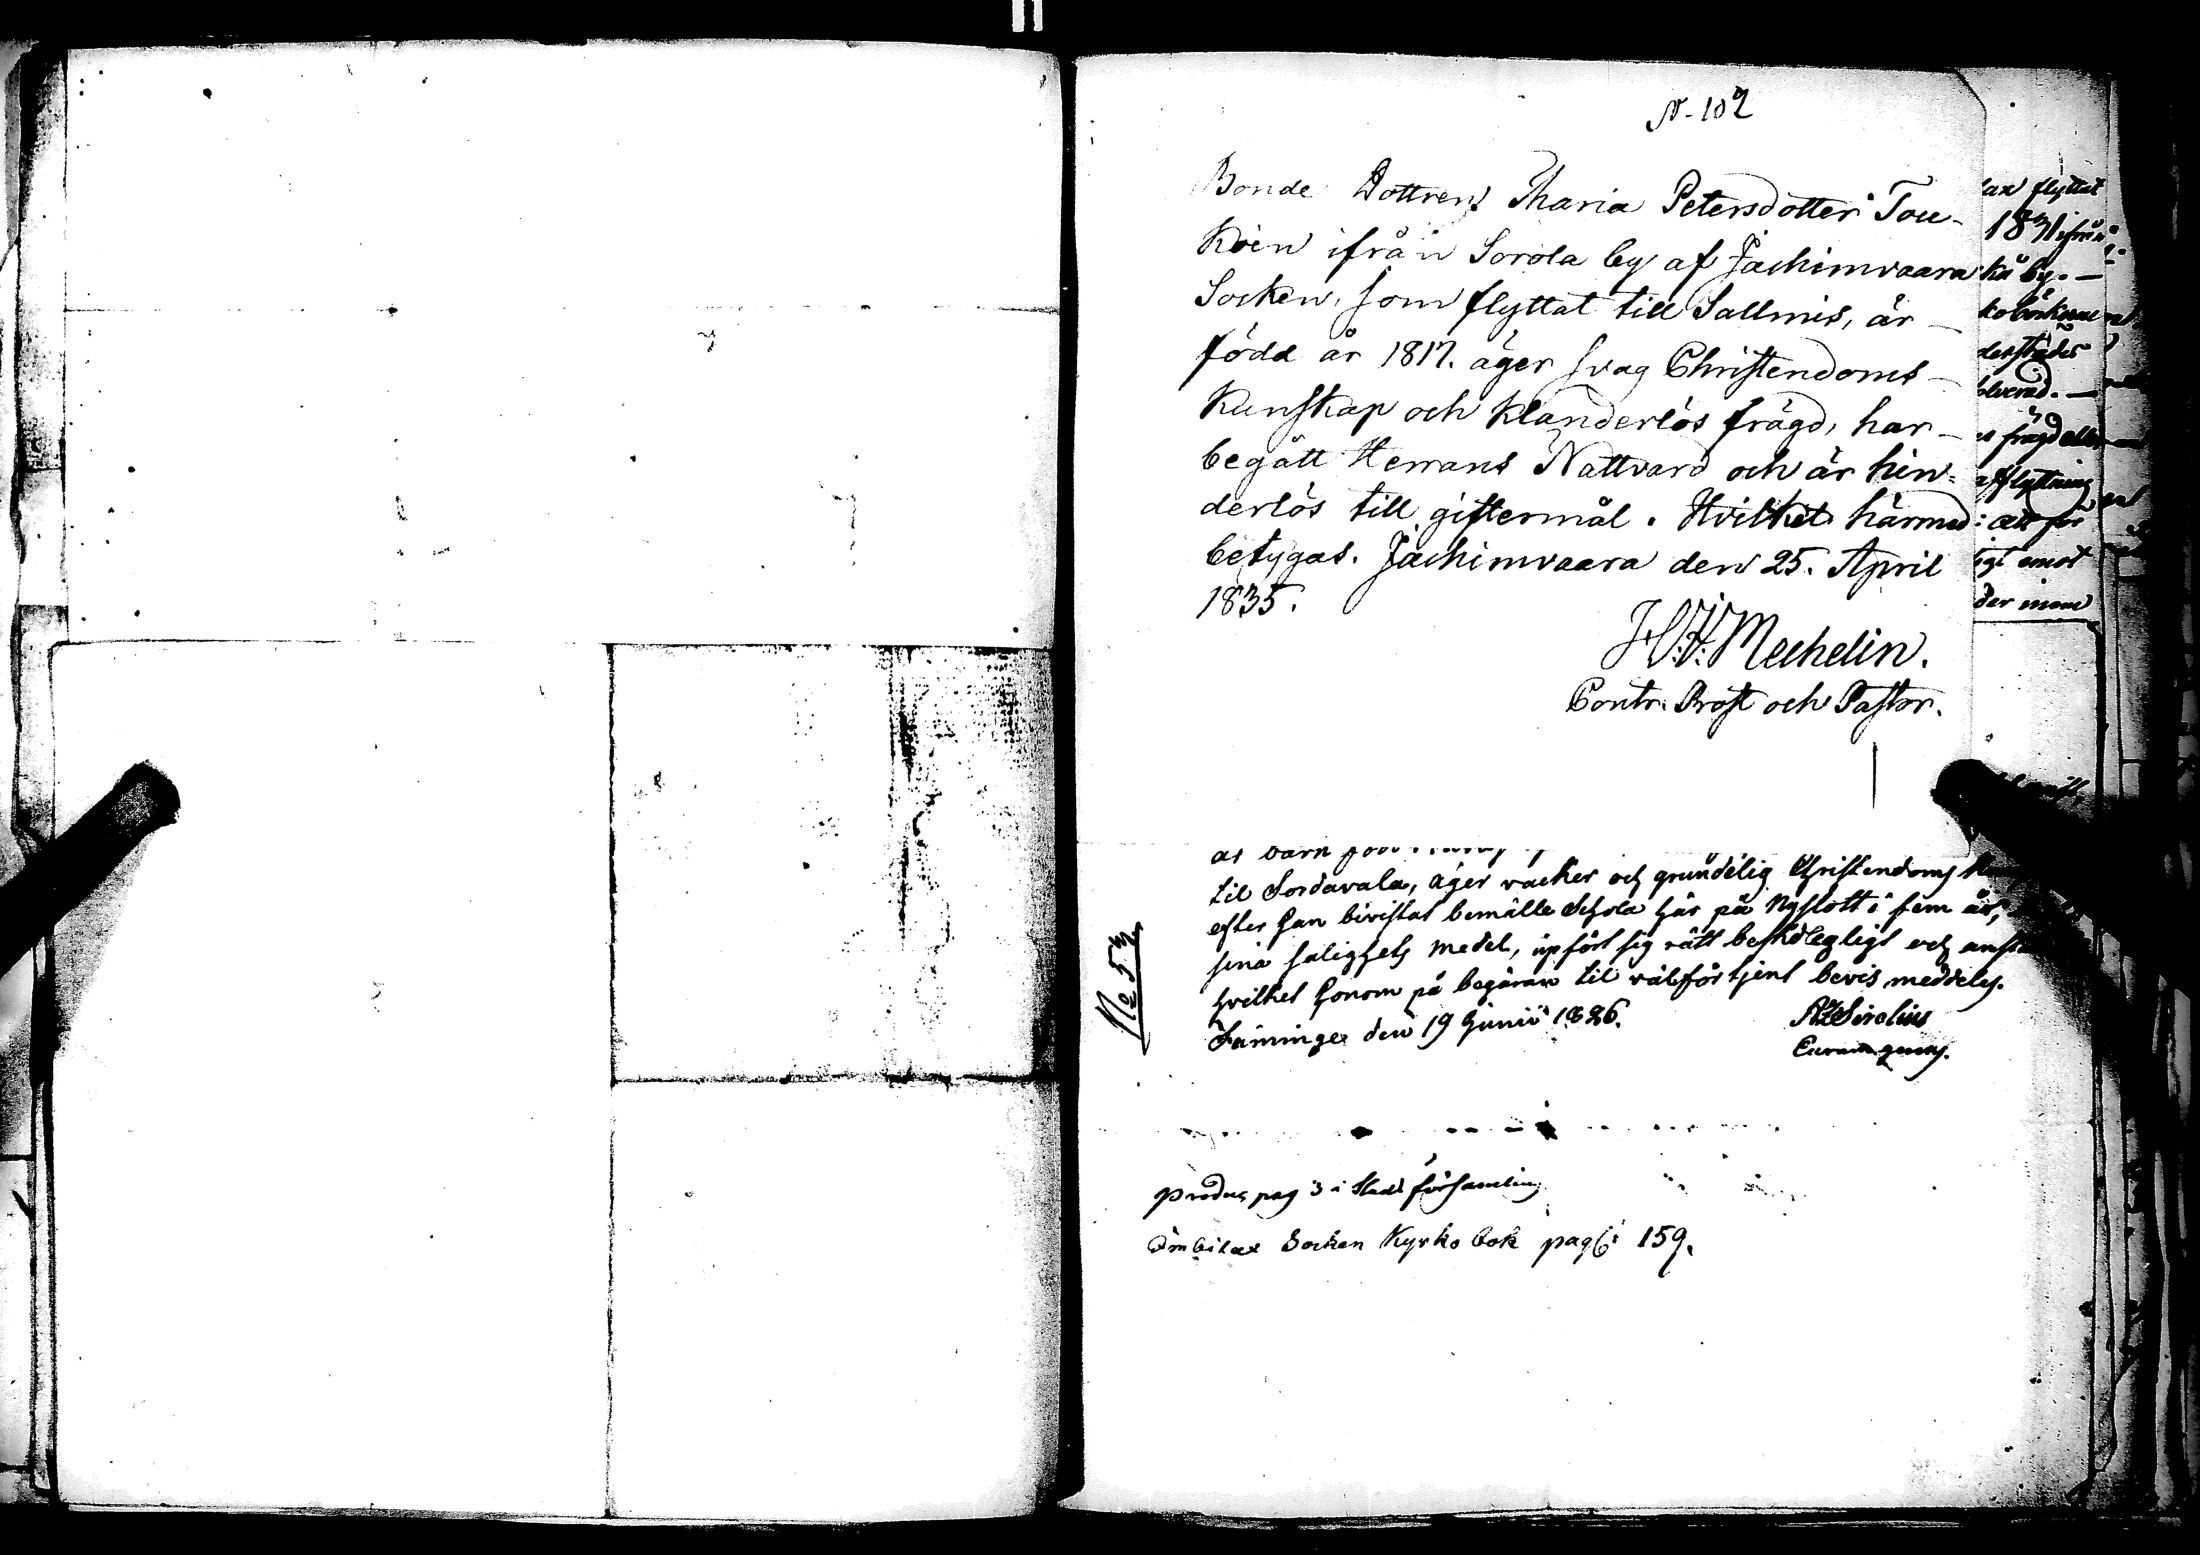 N. 102
Bonde Dottren Maria Petersdotter Tou-
koin ifrån Sorola by af Jachimvaara
Socken, som flyttat till Sallmis, är
född år 1817. äger svag Christendoms
Kunskap och Klanderlös frägd, har
begått Herrans Nattvard och är hin-
derlös till giftermål. Hvilket härmed
betygas. Jachimvaara den 25. April
1835.
Mechelin.
Contr. Prost och Pastor.
flyttat
1831 ifrån
by.
frägd
afflyttning
att för
emot
inom
No 57
barn
til Sordavala, äger vacker och grundelig Christendoms
efter han bivistat bemälte Schola här på Nyslott i fem år,
sina salighets medel, upfört sig rätt beskedeligt och
hvilket honom på begäran til välförtjent bevis meddelas.
Säminge den 19 Junii 1826.
Sirelius
pag 3 i Stads församling
Socken Kyrko bok pag: 159.